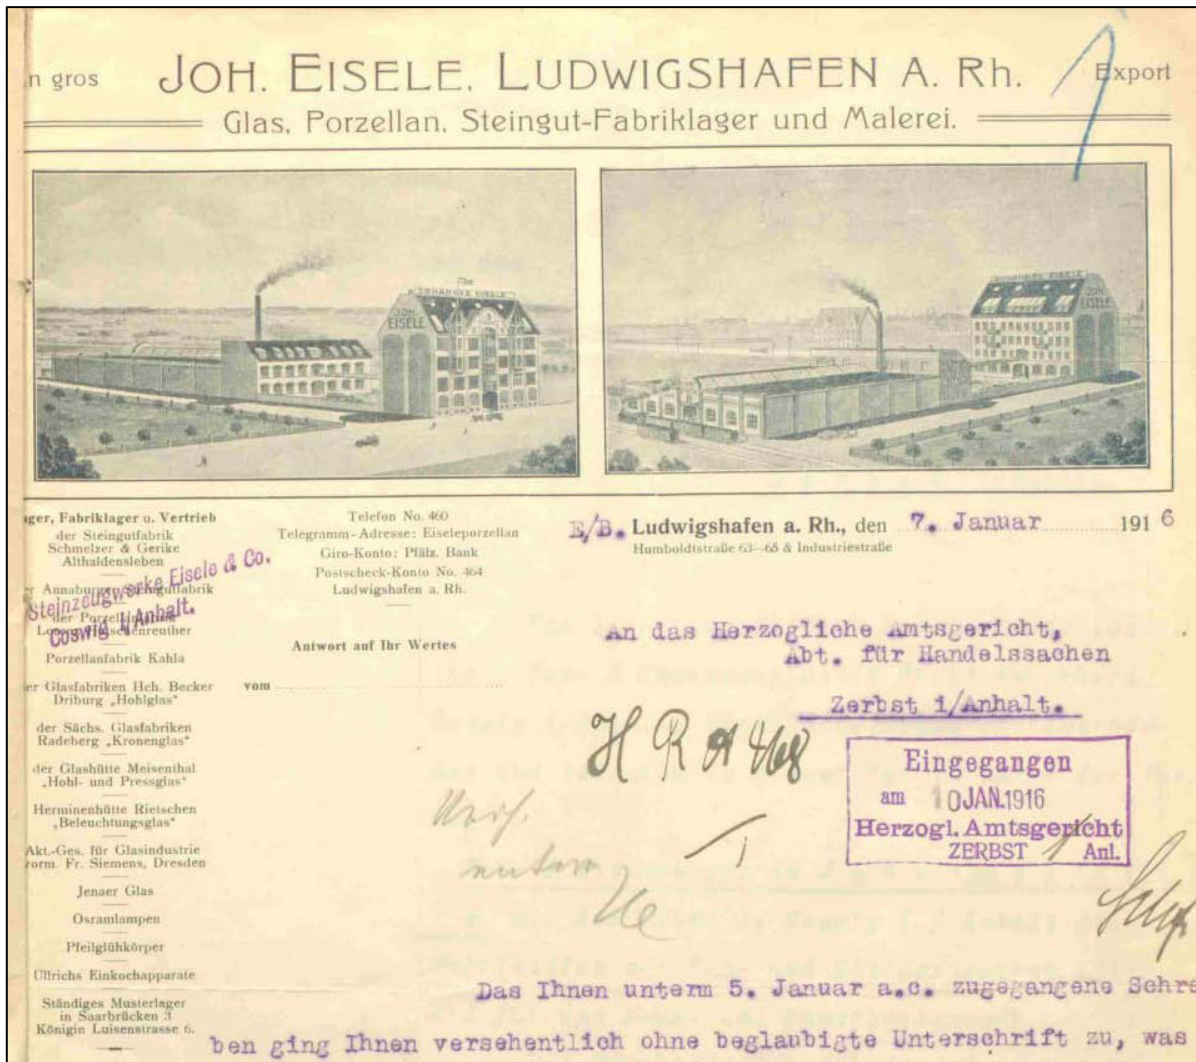 n gros
JOH. EISELE, LUDWIGSHAFEN A. Rh.
Export
Glas, Porzellan, Steingut-Fabriklager und Malerei.
JOHANNES EISELE
JOH. EISELE
JOHANNES EISELE
JOH. EISELE
ager, Fabriklager u. Vertrieb
der Steingutfabrik
Schmelzer & Gerike
Althaldensleben
er Annaburger Steingutfabrik
der Porzellanfabrik
Lorenz Hutschenreuther
Steinzeugwerke Eisele & Co.
Coswig i/Anhalt.
Porzellanfabrik Kahla
er Glasfabriken Hch. Becker
Driburg „Hohlglas"
der Sächs. Glasfabriken
Radeberg „Kronenglas"
der Glashütte Meisenthal
„Hohl- und Pressglas"
Herminenhütte Rietschen
„Beleuchtungsglas"
Akt.-Ges. für Glasindustrie
vorm. Fr. Siemens, Dresden
Jenaer Glas
Osramlampen
Pfeilglühkörper
Ullrichs Einkochapparate
Ständiges Musterlager
in Saarbrücken 3
Königin Luisenstrasse 6.
Telefon No. 460
Telegramm-Adresse: Eiseleporzellan
Giro-Konto: Pfälz. Bank
Postscheck-Konto No. 464
Ludwigshafen a. Rh.
Antwort auf Ihr Wertes
vom
E/B. Ludwigshafen a. Rh., den 7. Januar 1916
Humboldtstraße 63—65 & Industriestraße
An das Herzogliche Amtsgericht,
Abt. für Handelssachen
Zerbst i/Anhalt.
H R A 468
Eingegangen
am 10 JAN. 1916
Herzogl. Amtsgericht
ZERBST 1 Anl.
Das Ihnen unterm 5. Januar a.c. zugegangene Schre
ben ging Ihnen versehentlich ohne beglaubigte Unterschrift zu, was